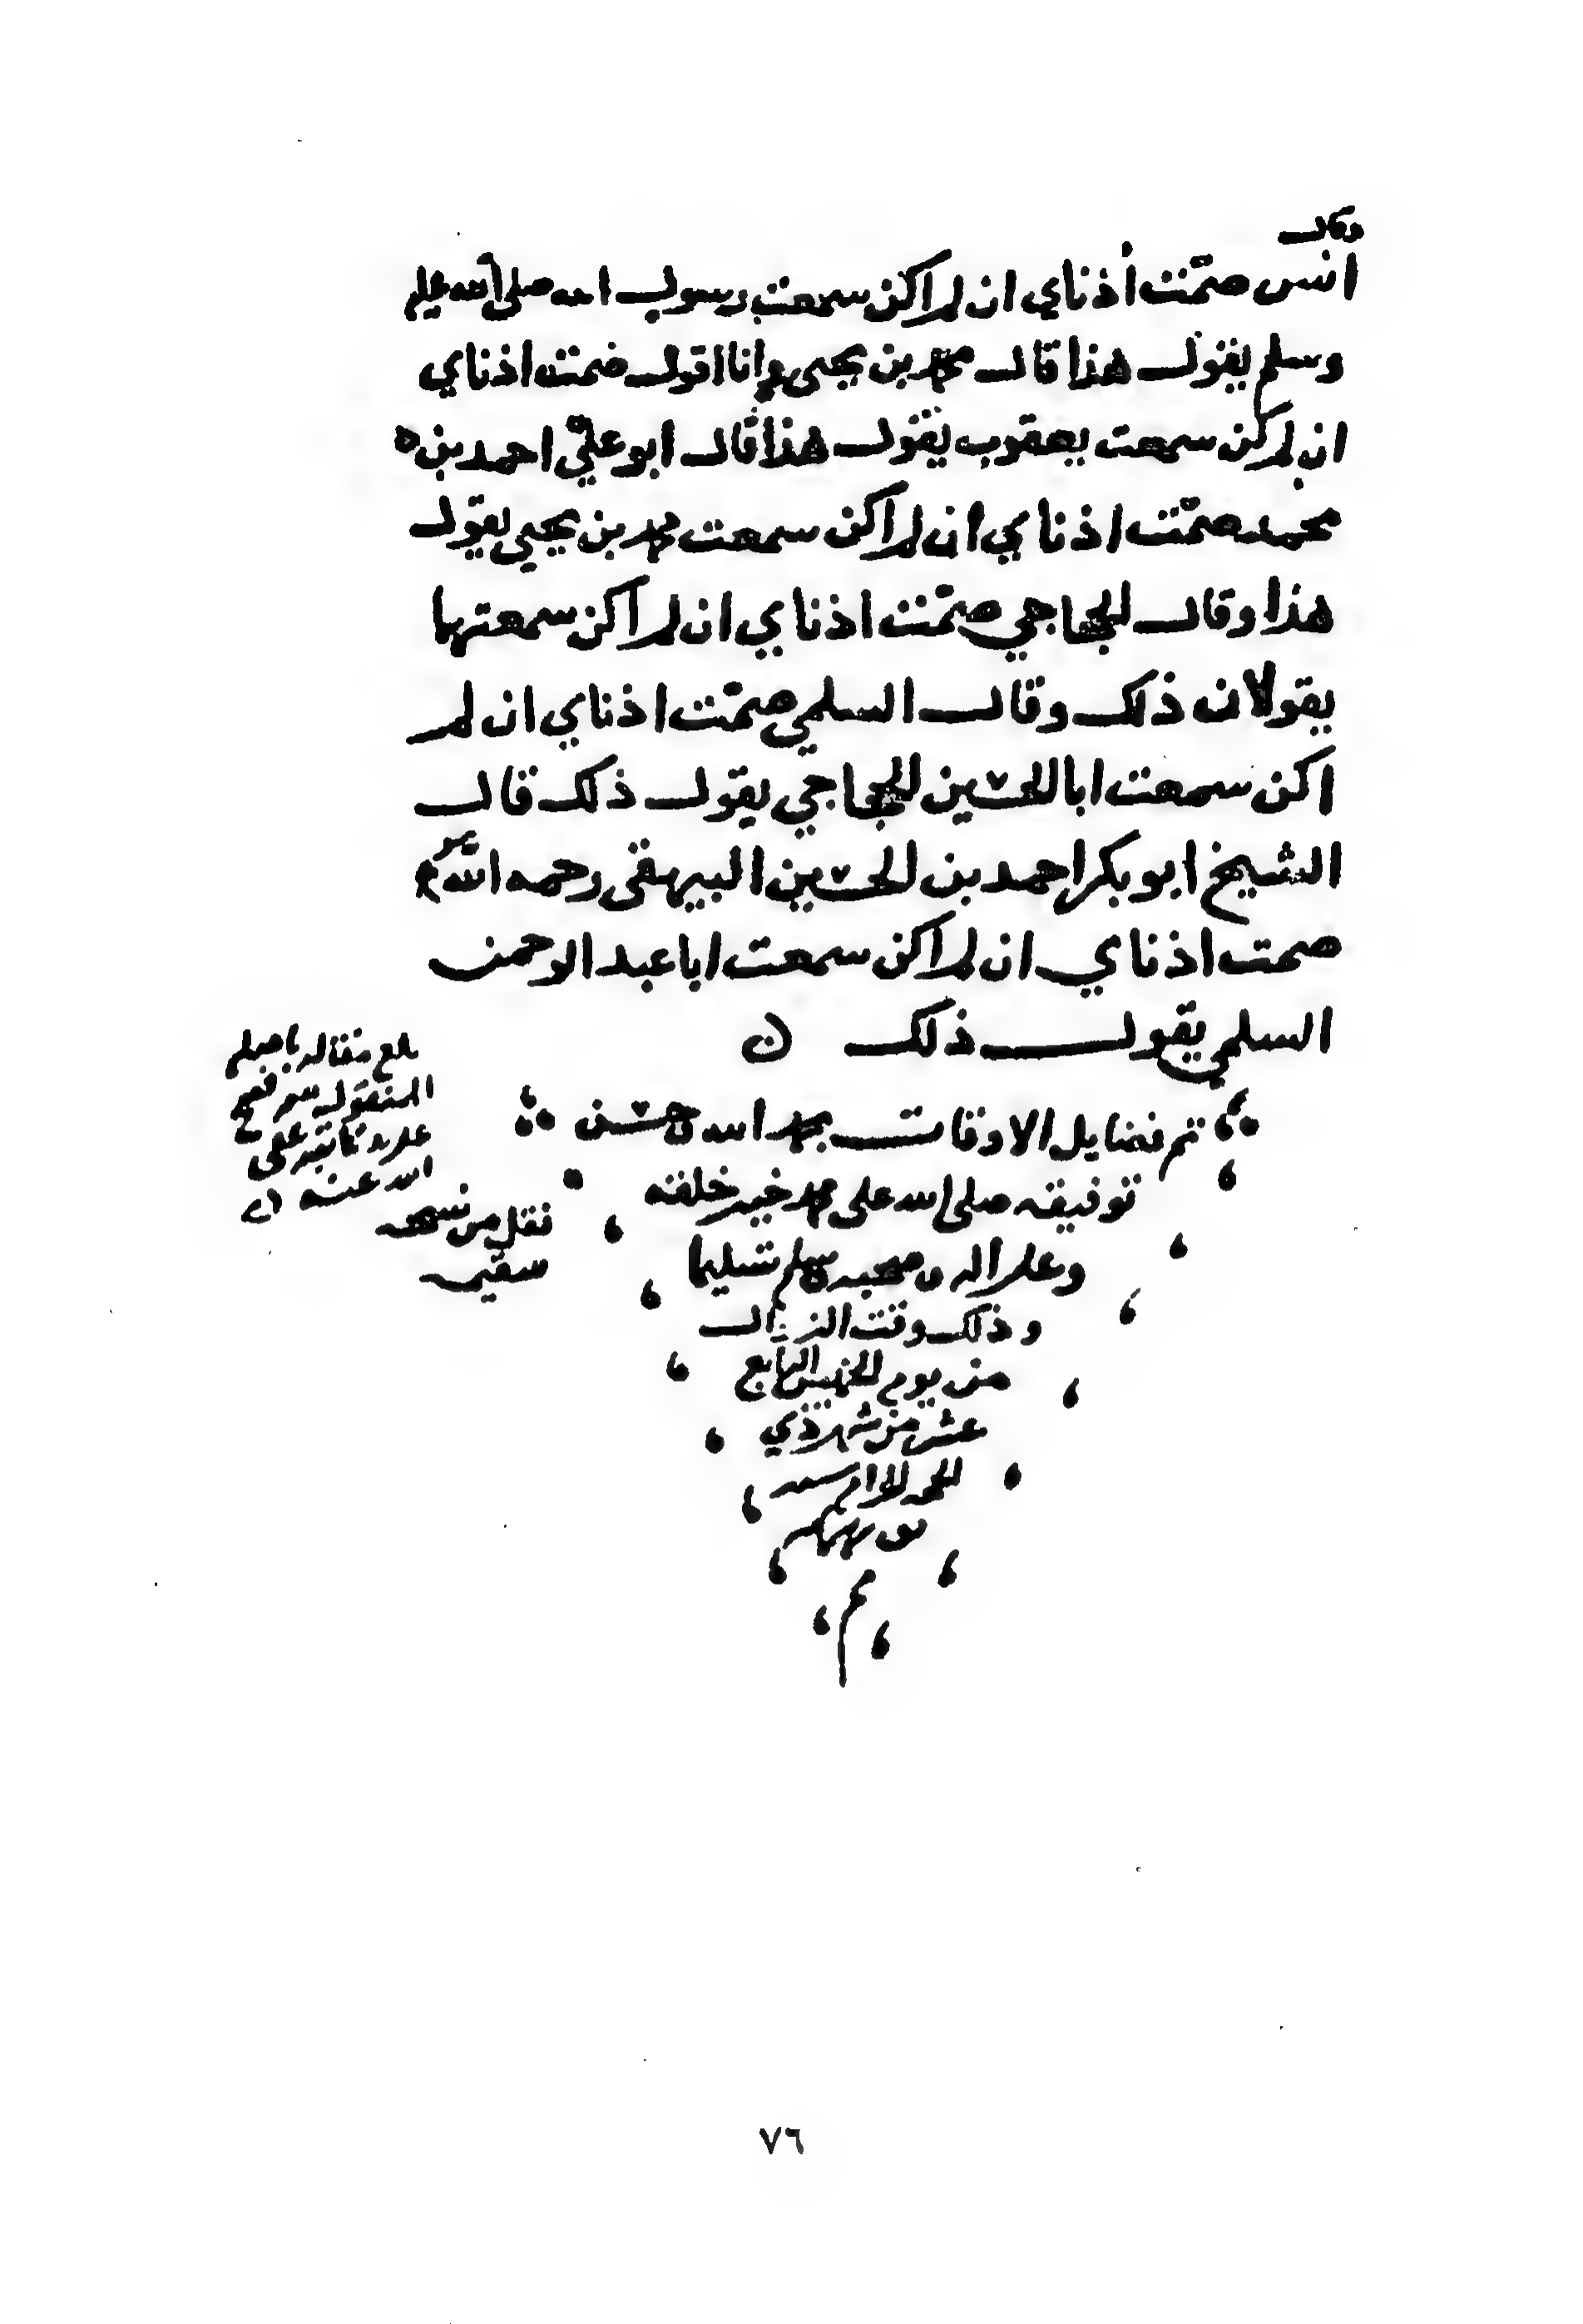 وقال
انس صمّت أذناي ان لم اكن سمعت رسول الله صلى الله عليه
وسلم يقول هذا قال محمد بن يحيى وانا اقول صمت اذناي
ان لم اكن سمعت يعقوب يقول هذا قال ابو علي احمد بن
محمد صمّت اذناي ان لم اكن سمعت محمد بن يحيى يقول
هذا وقال الحجاجي صمّت اذناي ان لم اكن سمعتهما
يقولان ذلك وقال السلمي صمّت اذناي ان لم
اكن سمعت ابا الحسين الحجاجي يقول ذلك قال
الشيخ ابو بكر احمد بن الحسين البيهقي رحمه الله
صمت اذناي ان لم اكن سمعت ابا عبد الرحمن
السلمي يقول ذلك ن
تم فضايل الاوقات بحمد الله وحسن
توفيقه صلى الله على محمد خير خلقه
وعلى اله وصحبه وسلم تسليما
وذلك وقت الزوال
من يوم الخميس السابع
عشر من شهر ذي
بلغ مقابله باصله
المنقول منه فصح
الله عنه
نقل من نسخه
سقيمه
٧٦